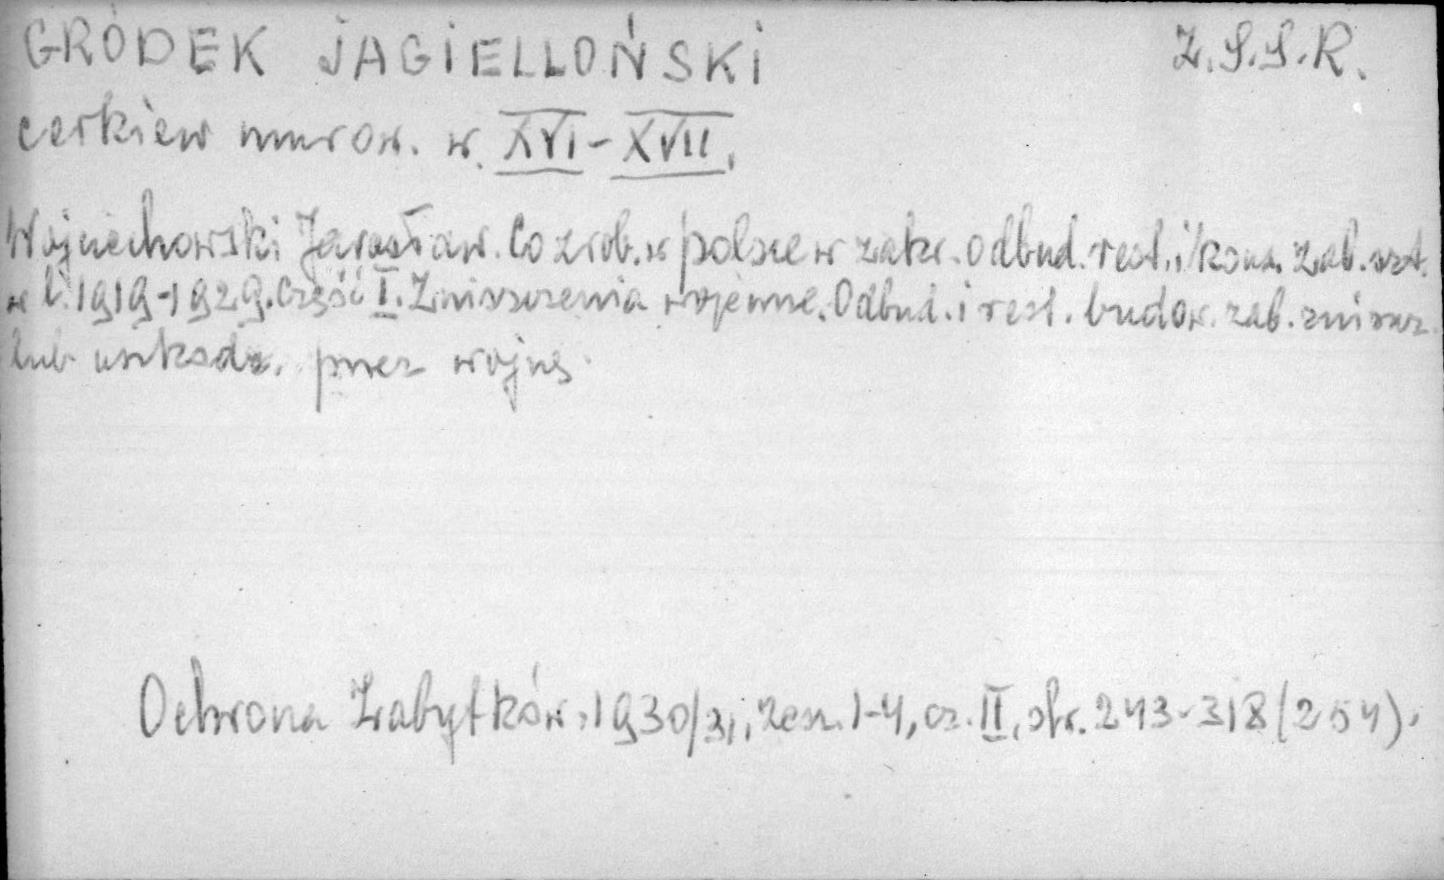 GRÓDEK JAGIELLOŃSKI
Z.S.S.R.
cerkiew murow. w. XVI-XVII.
Wojciechowski Jarosław. Co zrob. w polsce w zakr. odbud. rest. i kons. zab. szt.
w l. 1919-1929. Część I. Zniszczenia wojenne. Odbud. i rest. budow. zab. zniszcz.
lub uszkodz. przez wojnę.
Ochrona Zabytków, 1930/31, zesz. 1-4, cz. II, str. 243-318 (254).